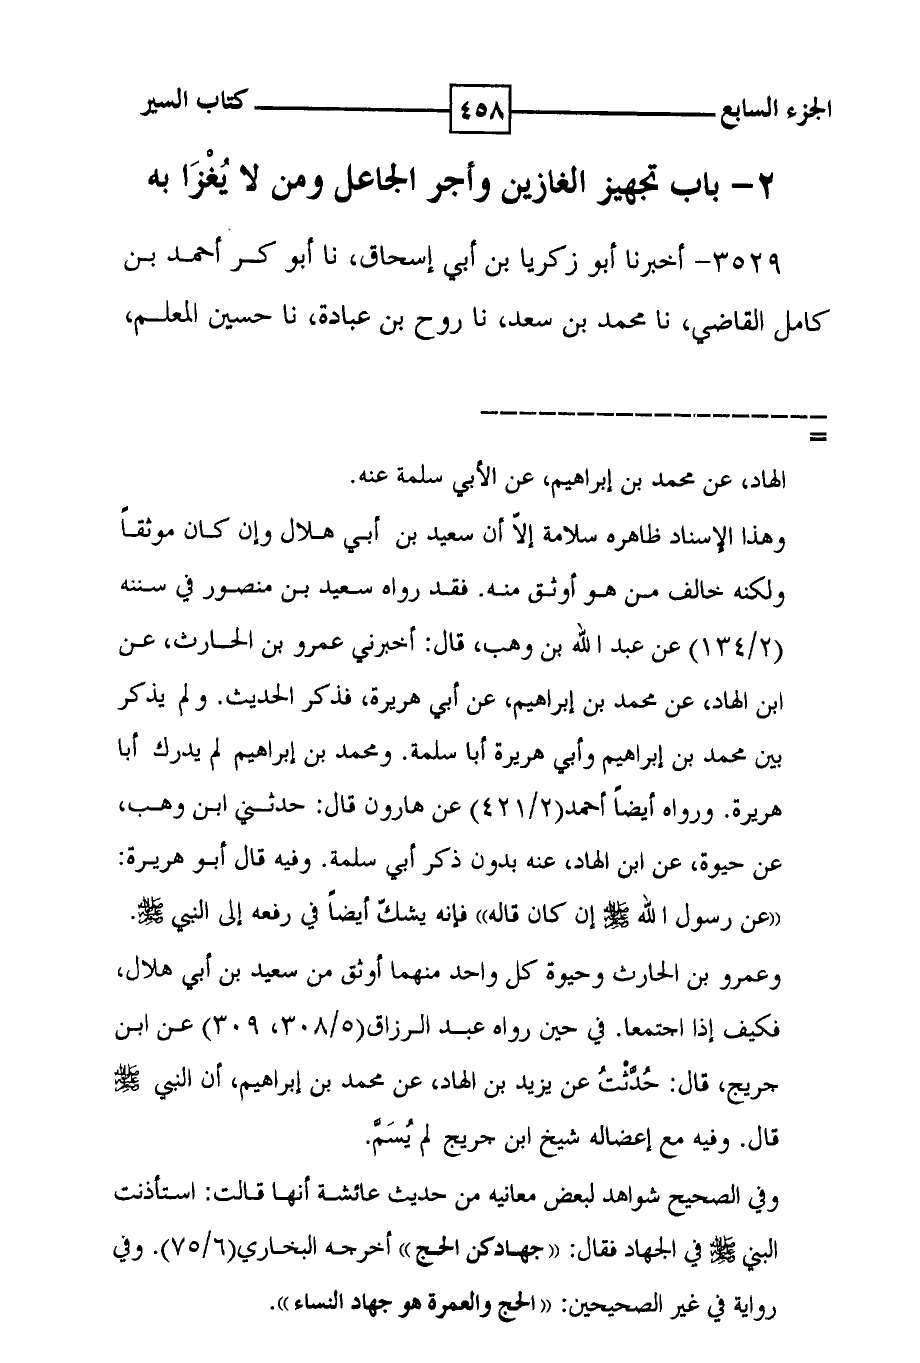 الجزء السابع ٤٥٨ كتاب السير
٢- باب تجهيز الغازين وأجر الجاعل ومن لا يُغْزَا به
٣٥٢٩- أخبرنا أبو زكريا بن أبي إسحاق، نا أبو كر أحمد بن
كامل القاضي، نا محمد بن سعد، نا روح بن عبادة، نا حسين المعلم،
=
الهاد، عن محمد بن إبراهيم، عن الأبي سلمة عنه.
وهذا الإسناد ظاهره سلامة إلاّ أن سعيد بن أبي هلال وإن كان موثقاً
ولكنه خالف من هو أوثق منه. فقد رواه سعيد بن منصور في سننه
(١٣٤/٢) عن عبد الله بن وهب، قال: أخبرني عمرو بن الحارث، عن
ابن الهاد، عن محمد بن إبراهيم، عن أبي هريرة، فذكر الحديث. ولم يذكر
بين محمد بن إبراهيم وأبي هريرة أبا سلمة. ومحمد بن إبراهيم لم يدرك أبا
هريرة. ورواه أيضاً أحمد(٤٢١/٢) عن هارون قال: حدثني ابن وهب،
عن حيوة، عن ابن الهاد، عنه بدون ذكر أبي سلمة. وفيه قال أبو هريرة:
((عن رسول الله ﷺ إن كان قاله)) فإنه يشكّ أيضاً في رفعه إلى النبي ﷺ.
وعمرو بن الحارث وحيوة كل واحد منهما أوثق من سعيد بن أبي هلال،
فكيف إذا اجتمعا. في حين رواه عبد الرزاق(٣٠٨/٥، ٣٠٩) عن ابن
جريج، قال: حُدَّثْتُ عن يزيد بن الهاد، عن محمد بن إبراهيم، أن النبي ﷺ
قال. وفيه مع إعضاله شيخ ابن جريج لم يُسَمَّ.
وفي الصحيح شواهد لبعض معانيه من حديث عائشة أنها قالت: استأذنت
البني ﷺ في الجهاد فقال: ((جهادكن الحج)) أخرجه البخاري(٧٥/٦). وفي
رواية في غير الصحيحين: ((الحج والعمرة هو جهاد النساء)).